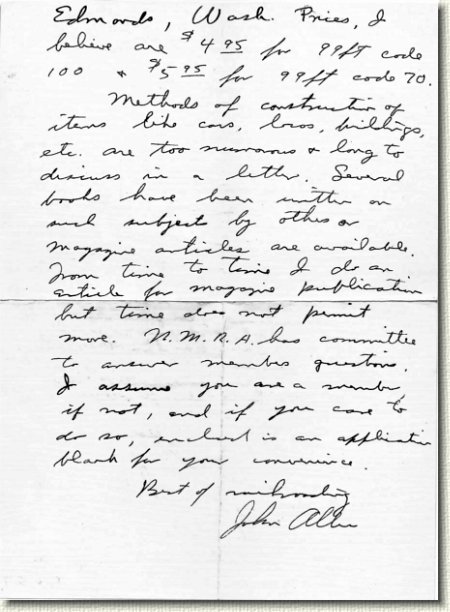 Edmonds, Wash. Prices, I
believe are $4.95 for 99ft code
100 & $5.95 for 99ft code 70.
Methods of construction of
items like cars, locos, buildings,
etc. are too numerous & long to
discuss in a letter. Several
books have been written on
such subject by others or
magazine articles are available.
From time to time I do an
article for magazine publication
but time does not permit
more. N.M.R.A. has committee
to answer members questions.
I assume you are a member
if not, and if you care to
do so, enclosed is an application
blank for your convenience.
Best of railroading
John Allen